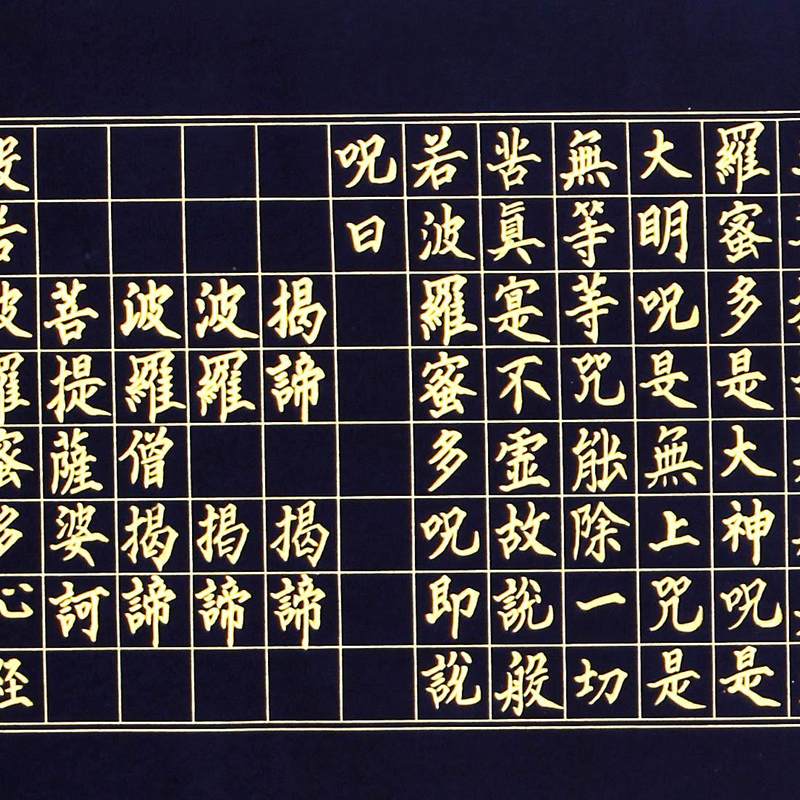 羅蜜多是大神呪是
大明呪是無上咒是
無等等咒能除一切
苦眞寔不虚故説般
若波羅蜜多呪即説
呪曰
揭諦 揭諦
波羅 揭諦
波羅僧揭諦
菩提薩婆訶
般若波羅蜜多心経